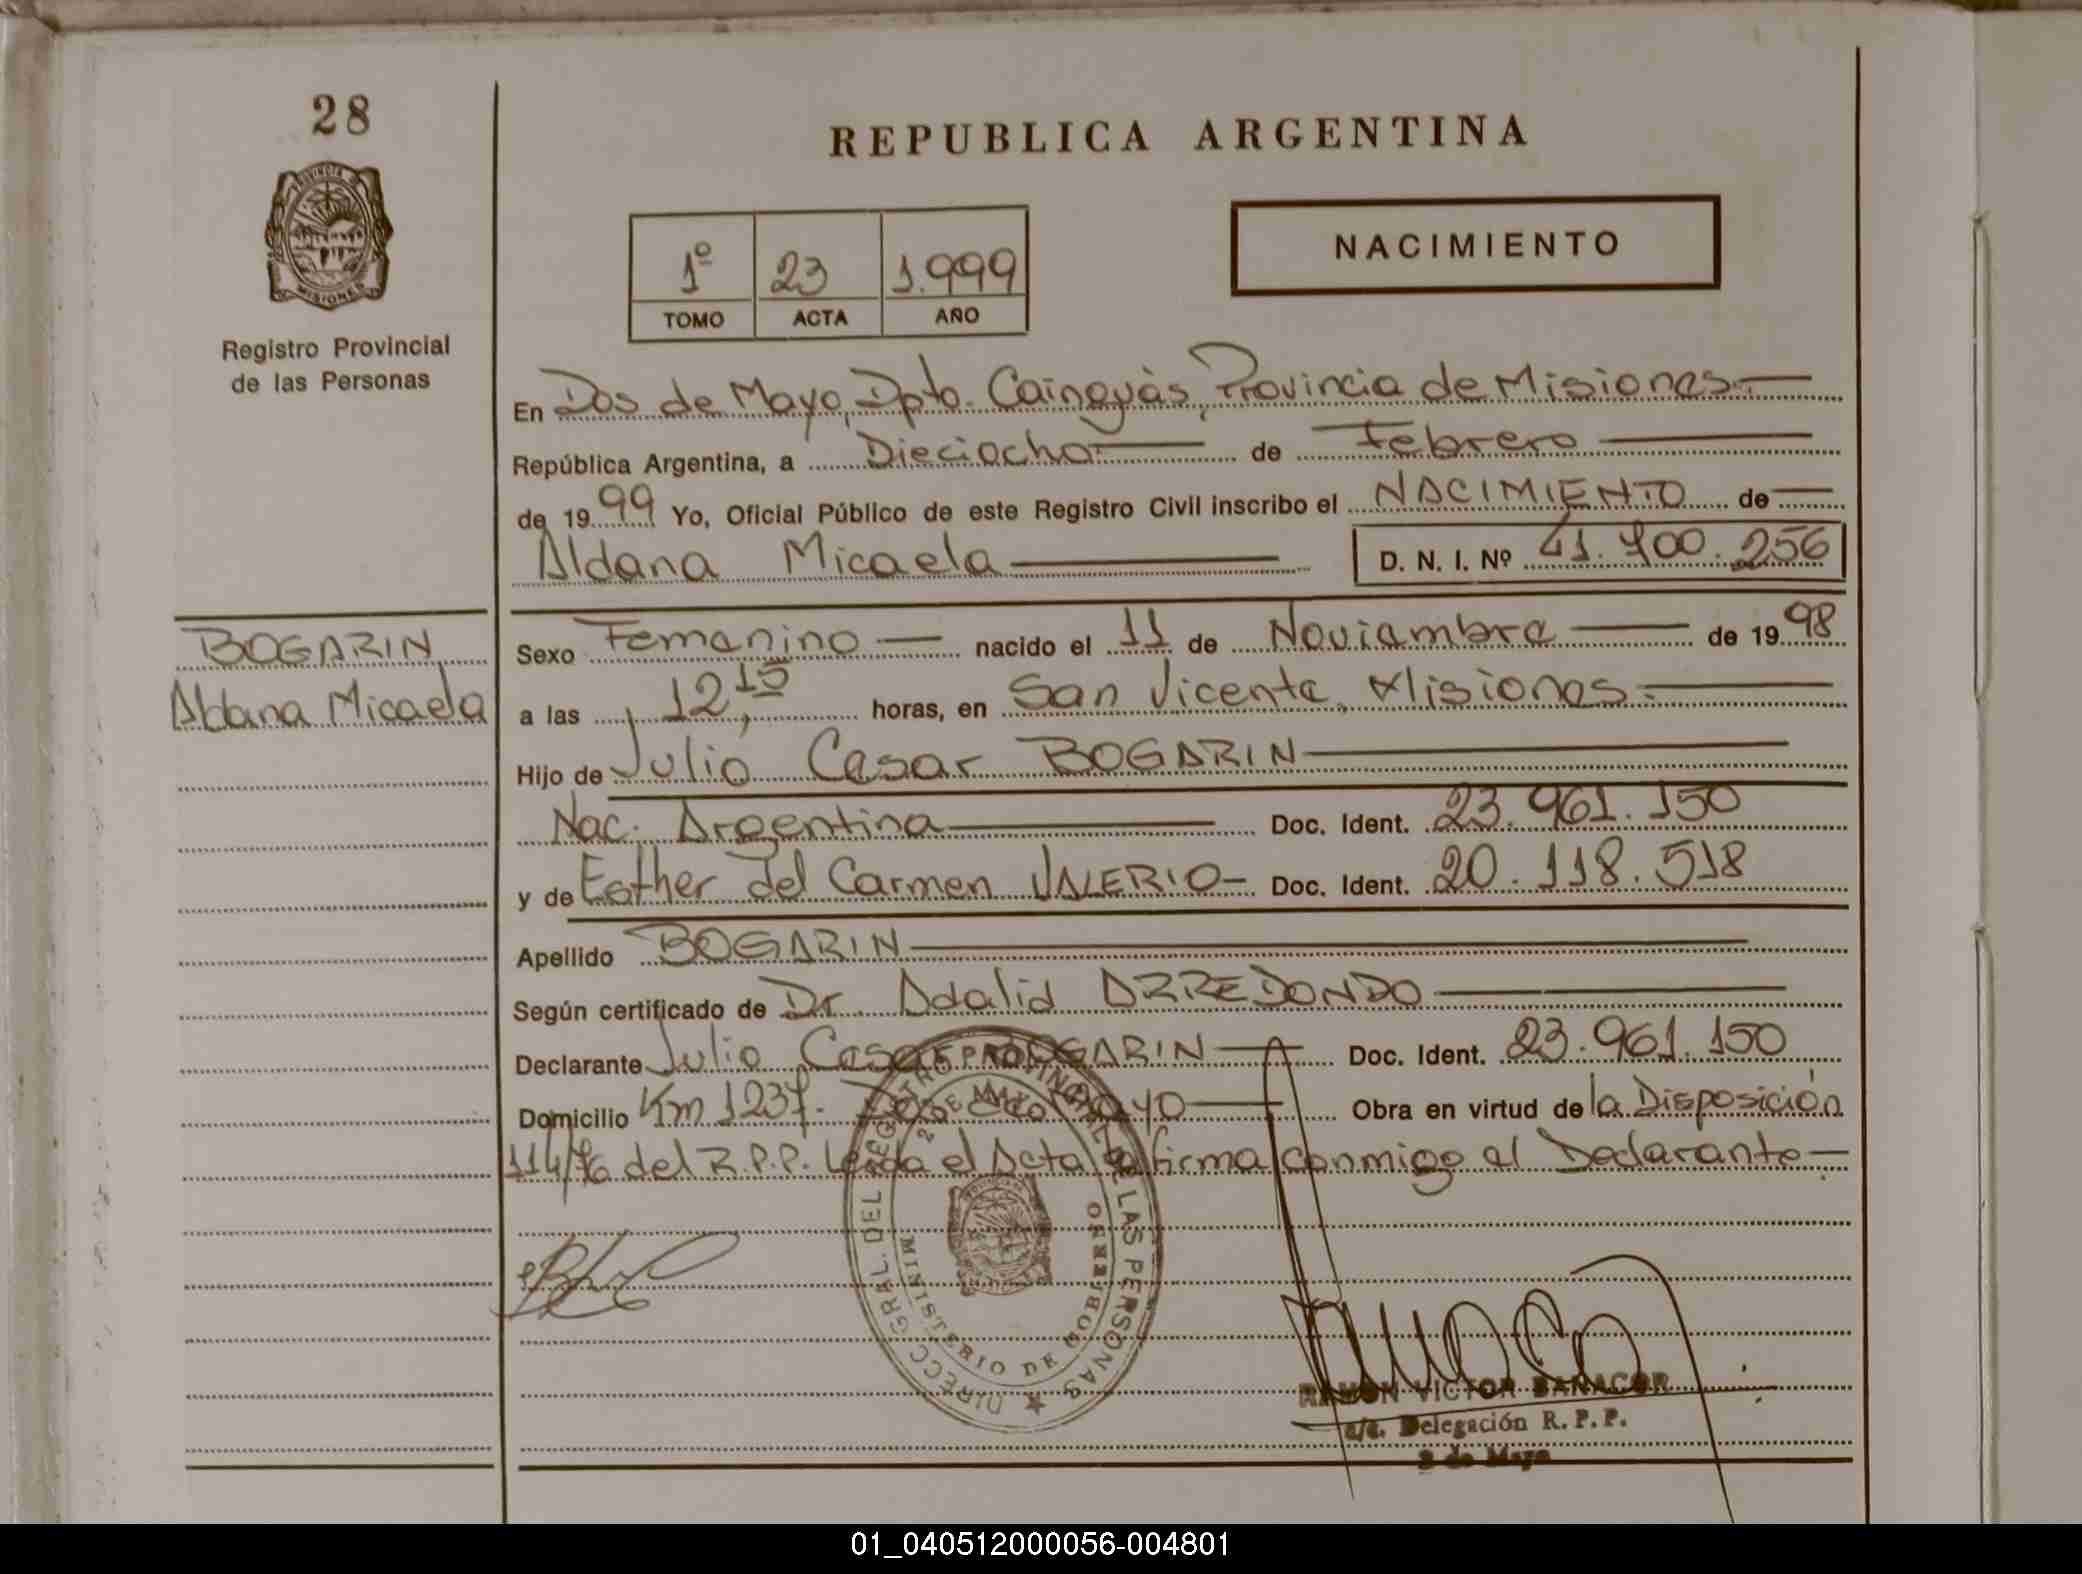 28
PROVINCIA DE
MISIONES
Registro Provincial
de las Personas
REPUBLICA ARGENTINA
1º 23 1.999
TOMO ACTA AÑO
NACIMIENTO
En Dos de Mayo, Dpto. Cainguás, Provincia de Misiones.-
República Argentina, a Dieciocho de Febrero
de 1999 Yo, Oficial Público de este Registro Civil inscribo el NACIMIENTO de
Aldana Micaela D. N. I. Nº 41.700.256
BOGARIN
Aldana Micaela
Sexo Femenino nacido el 11 de Noviembre de 1998
a las 12,15 horas, en San Vicente, Misiones.-
Hijo de Julio Cesar BOGARIN
Nac. Argentina Doc. Ident. 23.961.150
y de Esther del Carmen VALERIO- Doc. Ident. 20.118.518
Apellido BOGARIN
Según certificado de Dr. Adalid ARREDONDO
Declarante Julio Cesar BOGARIN Doc. Ident. 23.961.150
Domicilio Km 1237. Dos de Mayo Obra en virtud de la Disposición
114/76 del R.P.P. Leida el Acta la firma conmigo el Declarante-
DIRECC. GRAL. DEL REGISTRO PROVINCIAL DE LAS PERSONAS
2 DE MAYO
MINISTERIO DE GOBIERNO
RAMON VICTOR BANACOR
a/c. Delegación R. P. P.
2 de Mayo
01_040512000056-004801